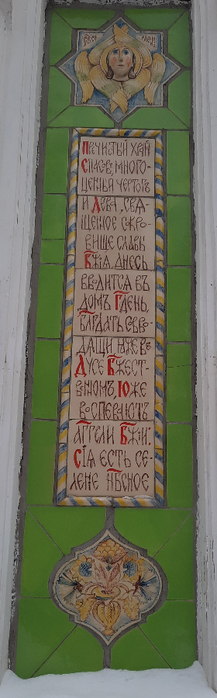 ПРЕЧИСТЫЙ ХРАМ
СПАСОВ, МНОГО-
ЦЕННЫЙ ЧЕРТОГ
И ДЕВА, СВЯ-
ЩЕННОЕ СОКРО-
ВИЩЕ СЛАВЫ
БЖИЯ, ДНЕСЬ
ВВОДИТСЯ ВЪ
ДОМЪ ГДЕНЬ,
БЛГДАТЬ СВВО-
ДЯЩИ ЯЖЕ ВЪ
ДУСЕ БЖЕСТ-
ВЕННОМЪ, ЮЖЕ
ВОСПЕВАЮТЪ
АГГЕЛИ БЖИИ:
СІЯ ЕСТЬ СЕ-
ЛЕНИЕ НБСНОЕ